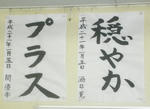 穏やか
平成二十一年一月五日
プラス
平成二十一年一月五日